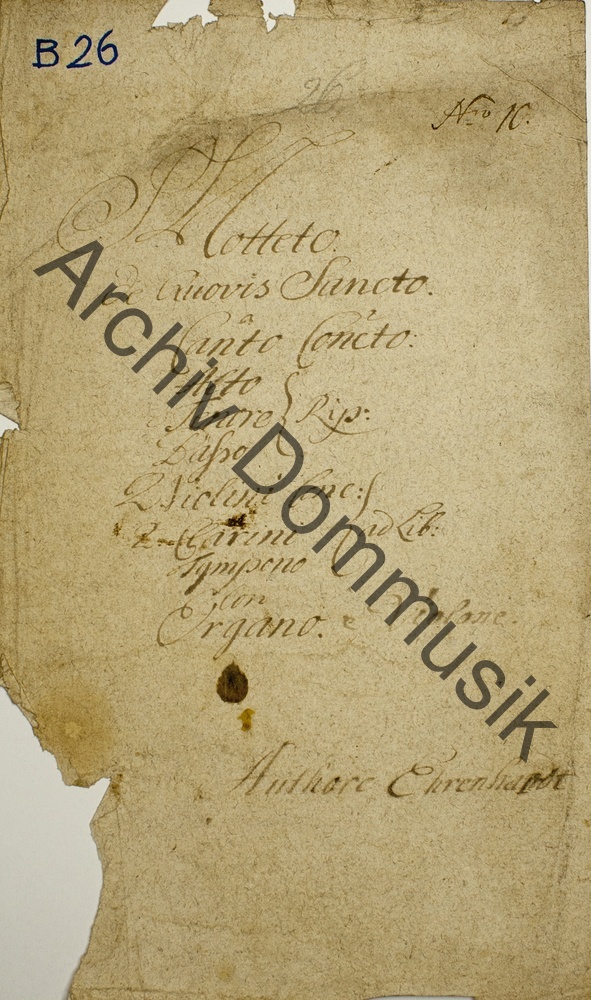 B 26
26
Nro 10.
Motteto.
de Quovis Sancto.
a
Canto Concto:
Alto
Tenore } Rip:
Basso
2 Violini Conc:
2 Clarini ad Lib:
Tympano
con
Organo. e Violone.
Authore Ehrenhardt
Archiv Dommusik